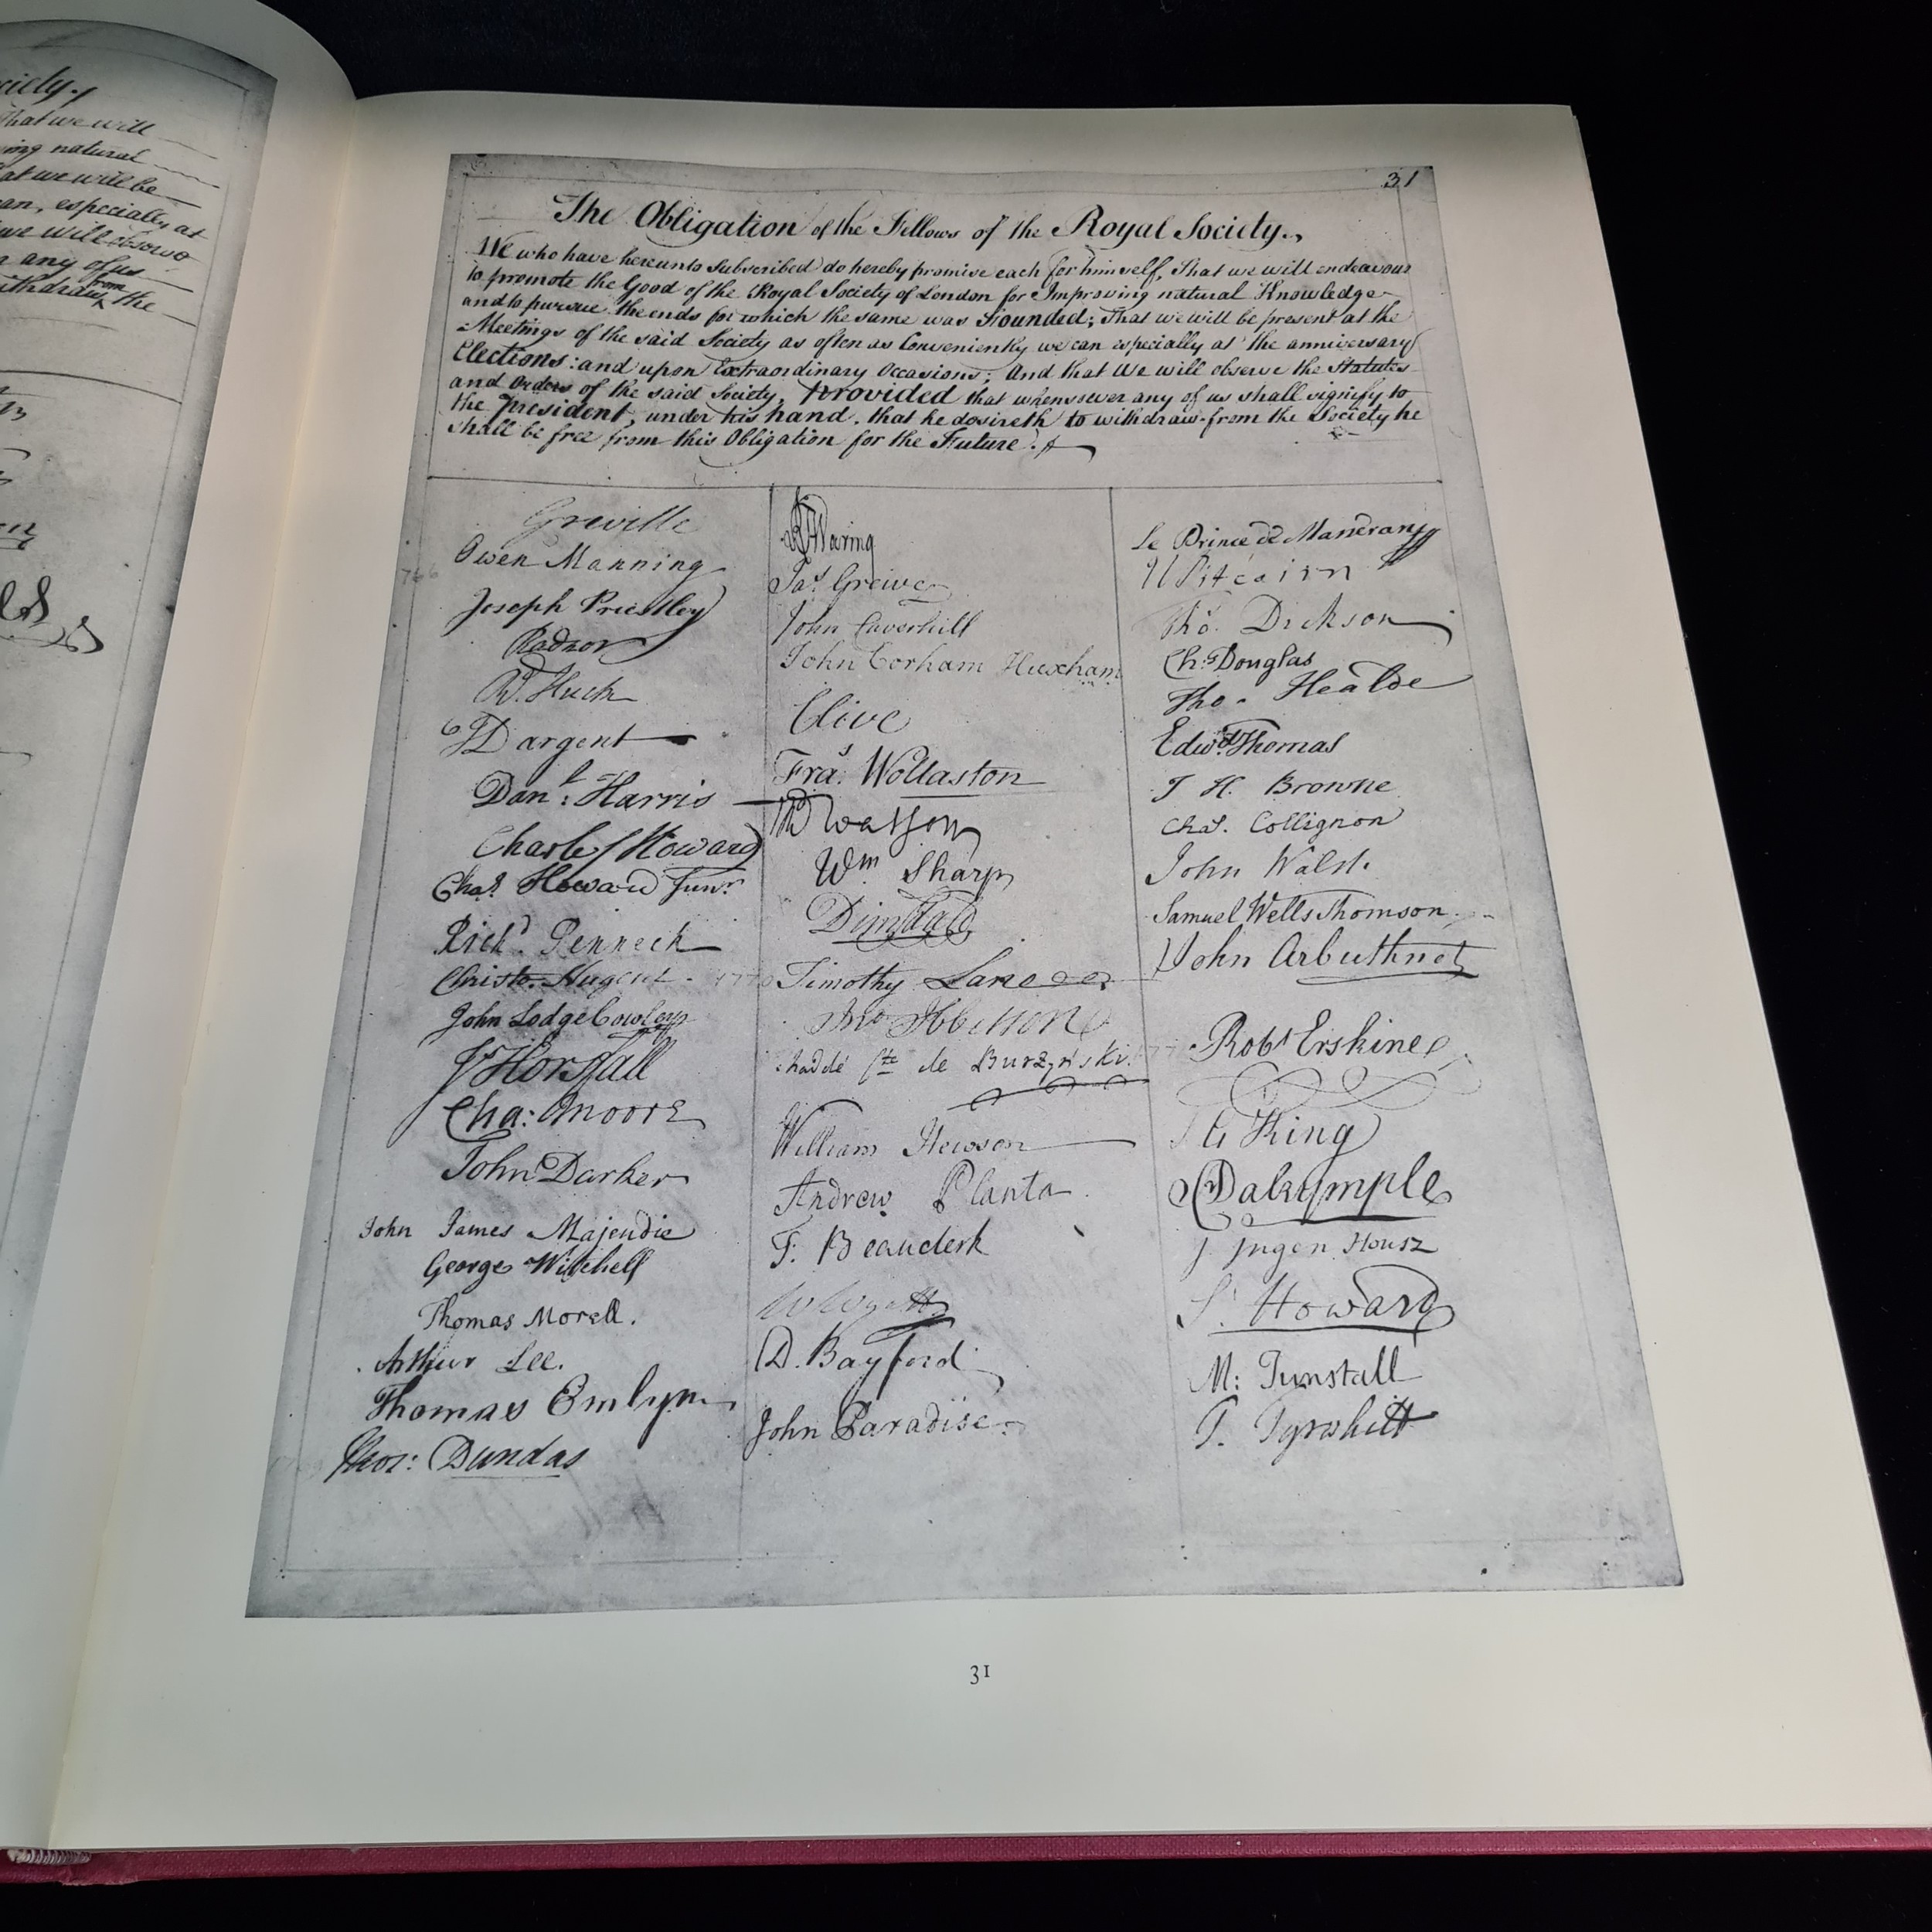 ciety.,
That we will
ving natural
at we will be
can, especially at
we will observe
n any of us
from
withdraw the
31
The Obligation of the Fellows of the Royal Society.,
We who have hereunto Subscribed do hereby promise each for himself, That we will endeavour
to promote the Good of the Royal Society of London for Improving natural Knowledge
and to pursue the ends for which the same was Founded; That we will be present at the
Meetings of the said Society as often as Conveniently we can especially at the anniversary
Elections: and upon Extraordinary Occasions; And that We will observe the Statutes
and Orders of the said Society, Provided that whensoever any of us shall signify to
the President, under his hand, that he desireth to withdraw from the Society he
shall be free from this Obligation for the Future.
Greville
Owen Manning
Joseph Priestley
Radnor
Rd. Huck
Dargent
Danl: Harris
Charles Howard
Chas Howard Junr.
Richd. Penneck
Christo. Nugent
John Lodge Cowley
J Horsfall
Cha: Moore
John Darker
John James Majendie
George Witchell
Thomas Morell.
Arthur Lee.
Thomas Emlyn
Thos: Dundas
Waring
Jas Greive
John Caverhill
John Corham Huxham
Clive
Fras. Wollaston
Watson
Wm Sharp
Dimsdale
Timothy Lane
Tho Ibbetson
Thaddé Cte de Burzynski.
William Hewson
Andrew Planta
F. Beauclerk
D. Bayford
John Paradise
Le Prince de Masserano
W Pitcairn
Tho. Dickson
Chs Douglas
Tho. Healde
Edwd Thomas
I H. Browne
Chas. Collignon
John Walsh
Samuel Wells Thomson
John Arbuthnot
Robt Erskine
J G King
Dalrymple
J Ingen Housz
Howard
M: Tunstall
T. Tyrwhitt
31